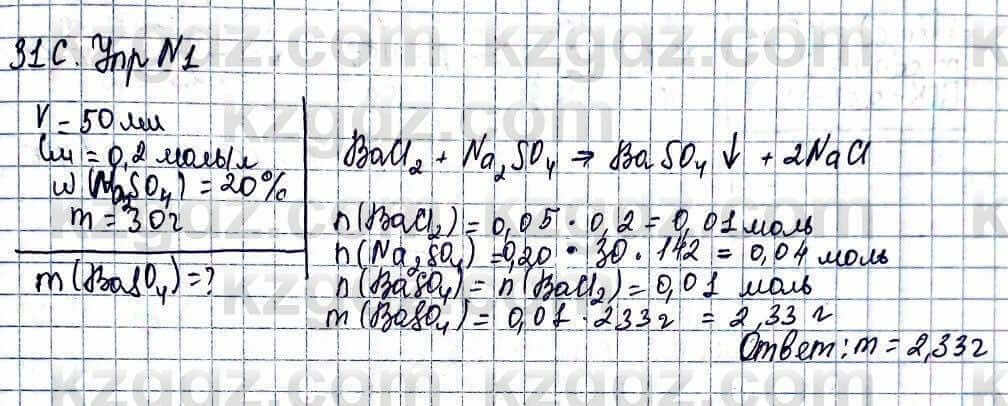 31С. Упр №1
V = 50 мл
Cм = 0,2 моль/л
w (Na₂SO₄) = 20%
m = 30г
m (BaSO₄) = ?
BaCl₂ + Na₂SO₄ → BaSO₄ ↓ + 2NaCl
n (BaCl₂) = 0,05 · 0,2 = 0,01 моль
n (Na₂SO₄) = 0,20 · 30 · 142 = 0,04 моль
n (BaSO₄) = n (BaCl₂) = 0,01 моль
m (BaSO₄) = 0,01 · 233 г = 2,33 г
Ответ: m = 2,33г
kzgdz.com